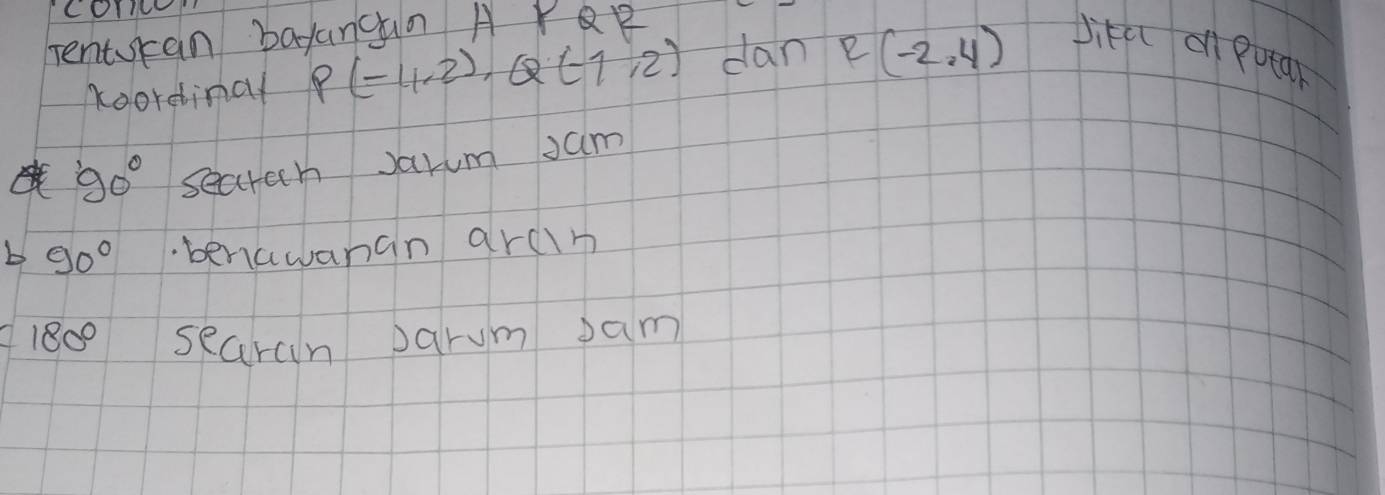 Tentukan bayangan Δ PQR
Koordinat P(-4,2), Q(-1,2) dan R(-2,4) Jika diputar
a 90° searah Jarum Jam
b 90° berlawanan arah
c 180° searah Jarum Jam